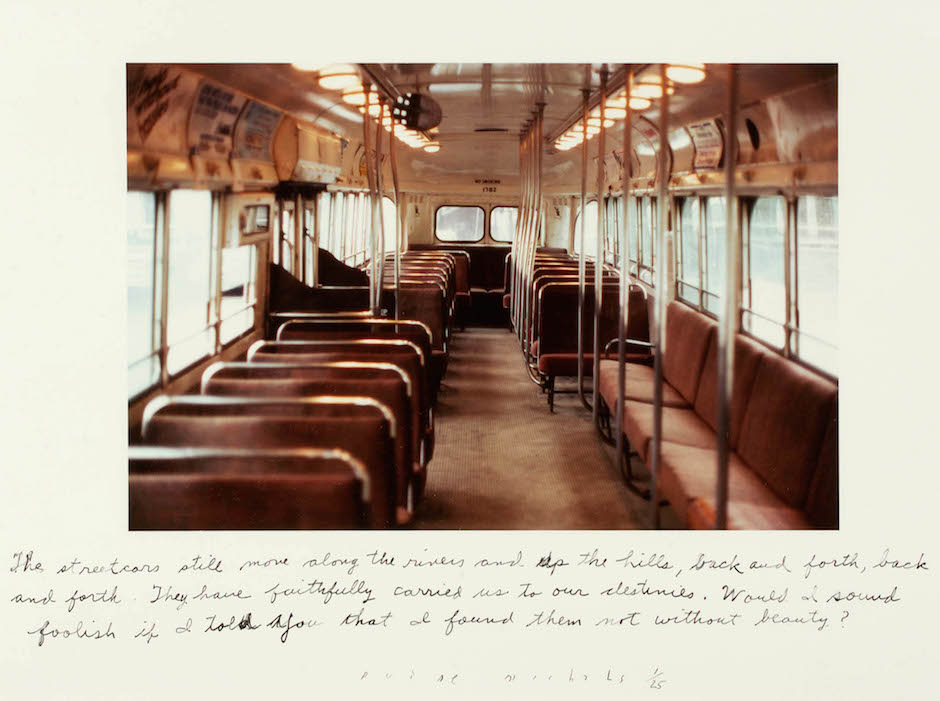 NO SMOKING
1782
The streetcars still move along the rivers and up the hills, back and forth, back
and forth. They have faithfully carried us to our destinies. Would I sound
foolish if I told you that I found them not without beauty?
duane michals 1/25